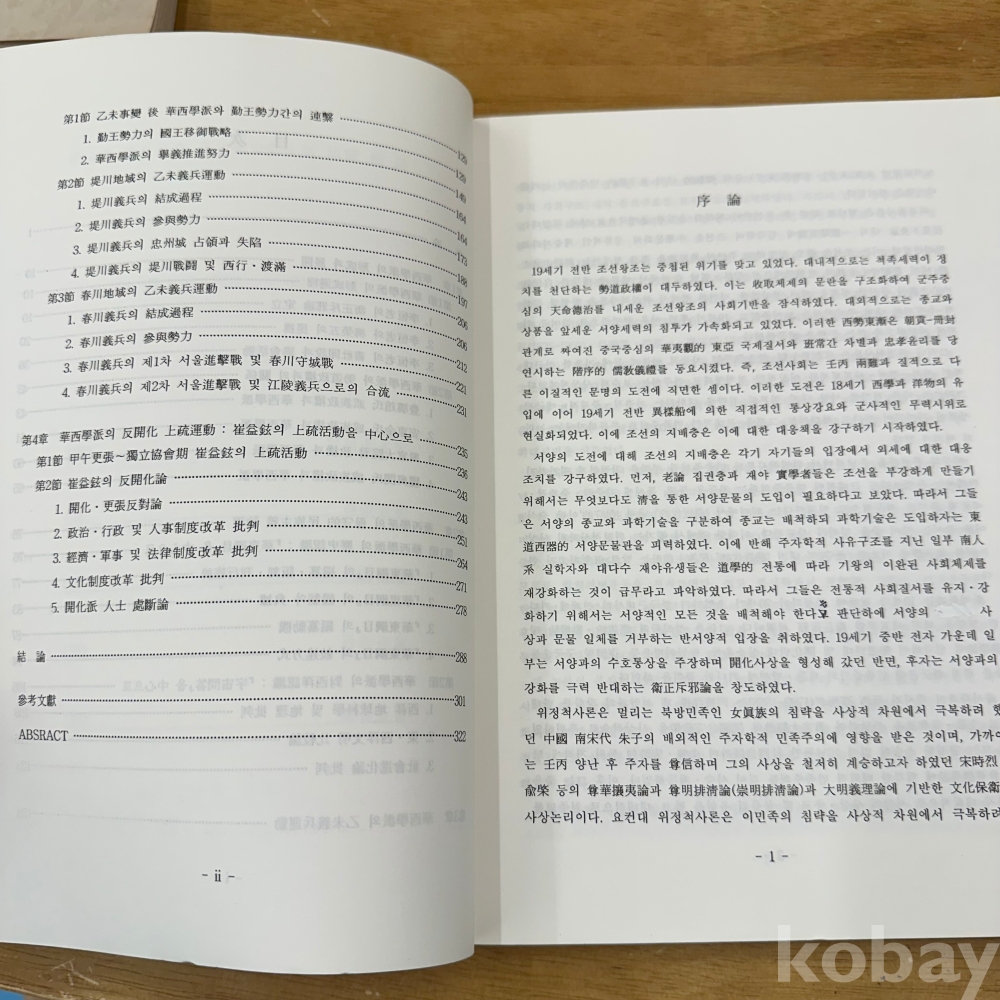 第1節 乙未事變 後 華西學派와 勤王勢力간의 連繫
1. 勤王勢力의 國王移御戰略 129
2. 華西學派의 擧義推進努力 129
第2節 堤川地域의 乙未義兵運動 149
1. 堤川義兵의 結成過程 164
2. 堤川義兵의 參與勢力 164
3. 堤川義兵의 忠州城 占領과 失陷 173
4. 堤川義兵의 堤川戰鬪 및 西行·渡滿 188
第3節 春川地域의 乙未義兵運動 197
1. 春川義兵의 結成過程 206
2. 春川義兵의 參與勢力 206
3. 春川義兵의 제1차 서울進擊戰 및 春川守城戰 212
4. 春川義兵의 제2차 서울進擊戰 및 江陵義兵으로의 合流 221
231
第4章 華西學派의 反開化 上疏運動 : 崔益鉉의 上疏活動을 中心으로 235
第1節 甲午更張~獨立協會期 崔益鉉의 上疏活動 236
第2節 崔益鉉의 反開化論 243
1. 開化·更張反對論 243
2. 政治·行政 및 人事制度改革 批判 251
3. 經濟·軍事 및 法律制度改革 批判 264
4. 文化制度改革 批判 271
5. 開化派 人士 處斷論 278
結 論 288
參考文獻 301
ABSRACT 322
- ii -
序 論
19세기 전반 조선왕조는 중첩된 위기를 맞고 있었다. 대내적으로는 척족세력이 정
치를 천단하는 勢道政權이 대두하였다. 이는 收取체제의 문란을 구조화하여 군주중
심의 天命德治를 내세운 조선왕조의 사회기반을 잠식하였다. 대외적으로는 종교와
상품을 앞세운 서양세력의 침투가 가속화되고 있었다. 이러한 西勢東漸은 朝貢-冊封
관계로 짜여진 중국중심의 華夷觀的 東亞 국제질서와 班常간 차별과 忠孝윤리를 당
연시하는 階序的 儒敎儀禮를 동요시켰다. 즉, 조선사회는 壬丙 兩難과 질적으로 다
른 이질적인 문명의 도전에 직면한 셈이다. 이러한 도전은 18세기 西學과 洋物의 유
입에 이어 19세기 전반 異樣船에 의한 직접적인 통상강요와 군사적인 무력시위로
현실화되었다. 이에 조선의 지배층은 이에 대한 대응책을 강구하기 시작하였다.
서양의 도전에 대해 조선의 지배층은 각기 자기들의 입장에서 외세에 대한 대응
조치를 강구하였다. 먼저, 老論 집권층과 재야 實學者들은 조선을 부강하게 만들기
위해서는 무엇보다도 淸을 통한 서양문물의 도입이 필요하다고 보았다. 따라서 그들
은 서양의 종교와 과학기술을 구분하여 종교는 배척하되 과학기술은 도입하자는 東
道西器的 서양문물관을 피력하였다. 이에 반해 주자학적 사유구조를 지닌 일부 南人
系 실학자와 대다수 재야유생들은 道學的 전통에 따라 기왕의 이완된 사회체제를
재강화하는 것이 급무라고 파악하였다. 따라서 그들은 전통적 사회질서를 유지·강
화하기 위해서는 서양적인 모든 것을 배척해야 한다 판단하에 서양의 사
상과 문물 일체를 거부하는 반서양적 입장을 취하였다. 19세기 중반 전자 가운데 일
부는 서양과의 수호통상을 주장하며 開化사상을 형성해 갔던 반면, 후자는 서양과의
강화를 극력 반대하는 衛正斥邪論을 창도하였다.
위정척사론은 멀리는 북방민족인 女眞族의 침략을 사상적 차원에서 극복하려 했
던 中國 南宋代 朱子의 배외적인 주자학적 민족주의에 영향을 받은 것이며, 가까이
는 壬丙 양난 후 주자를 尊信하며 그의 사상을 철저히 계승하고자 하였던 宋時烈
兪棨 등의 尊華攘夷論과 尊明排淸論(崇明排淸論)과 大明義理論에 기반한 文化保衛
사상논리이다. 요컨대 위정척사론은 이민족의 침략을 사상적 차원에서 극복하려
- 1 -
kobay